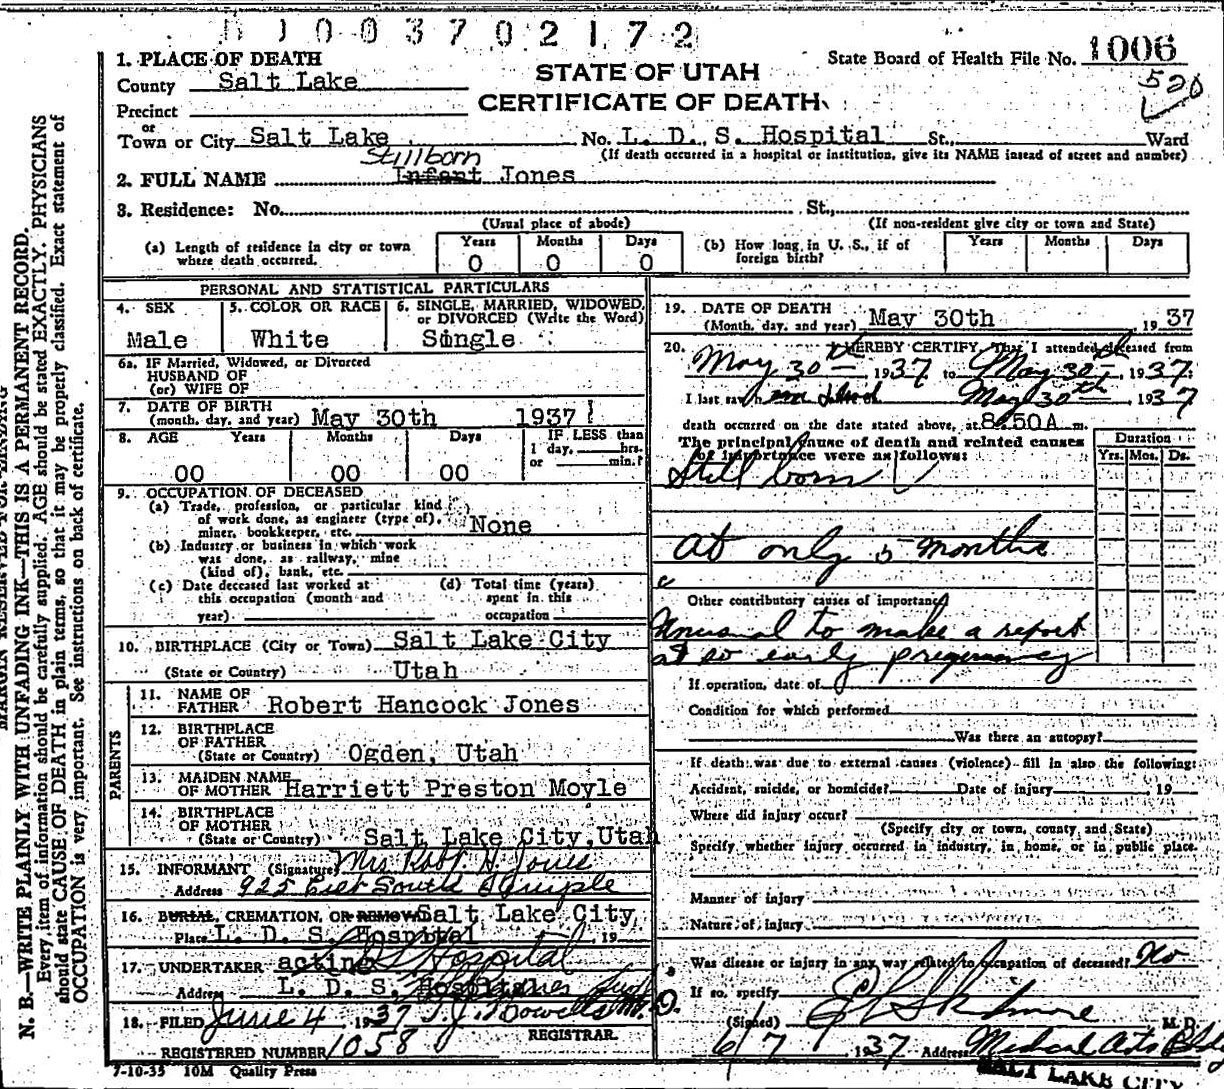 1003702172
1. PLACE OF DEATH
County Salt Lake
Precinct
or
Town or City Salt Lake No. L. D. S. Hospital St., Ward
STATE OF UTAH
CERTIFICATE OF DEATH
State Board of Health File No. 1006
520
(If death occurred in a hospital or institution, give its NAME instead of street and number)
Stillborn
2. FULL NAME Infant Jones
3. Residence: No. St.,
(Usual place of abode) (If non-resident give city or town and State)
(a) Length of residence in city or town where death occurred. Years 0 Months 0 Days 0
(b) How long in U. S., if of foreign birth? Years Months Days
PERSONAL AND STATISTICAL PARTICULARS
4. SEX Male
5. COLOR OR RACE White
6. SINGLE, MARRIED, WIDOWED, or DIVORCED (Write the Word) Single
6a. IF Married, Widowed, or Divorced
HUSBAND OF
(or) WIFE OF
7. DATE OF BIRTH
(month, day, and year) May 30th 1937
8. AGE Years Months Days IF LESS than
1 day, hrs.
or min.?
00 00 00
9. OCCUPATION OF DECEASED
(a) Trade, profession, or particular kind
of work done, as engineer (type of),
miner, bookkeeper, etc. None
(b) Industry or business in which work
was done, as railway, mine
(kind of), bank, etc.
(c) Date deceased last worked at
this occupation (month and
year)
(d) Total time (years)
spent in this
occupation
10. BIRTHPLACE (City or Town) Salt Lake City
(State or Country) Utah
PARENTS
11. NAME OF
FATHER Robert Hancock Jones
12. BIRTHPLACE
OF FATHER
(State or Country) Ogden, Utah
13. MAIDEN NAME
OF MOTHER Harriett Preston Moyle
14. BIRTHPLACE
OF MOTHER
(State or Country) Salt Lake City, Utah
15. INFORMANT (Signature) Mrs Robt. H. Jones
Address 925 East South Temple
16. BURIAL, CREMATION, OR REMOVAL Salt Lake City
Place L. D. S. Hospital, 19
17. UNDERTAKER acting L D S Hospital
Address L. D. S. Hospital
18. FILED June 4 1937 T. J. Howells M. D.
REGISTRAR.
REGISTERED NUMBER 1058
7-10-35 10M Quality Press
19. DATE OF DEATH
(Month, day, and year) May 30th, 1937
20. I HEREBY CERTIFY, That I attended deceased from
May 30th, 1937, to May 30th, 1937,
I last saw him dead May 30th, 1937
death occurred on the date stated above, at 8:50A m.
The principal cause of death and related causes
of importance were as follows:
Duration
Yrs. Mos. Ds.
Still born
at only 5 months
Other contributory causes of importance
Unusual to make a report
at so early pregnancy
If operation, date of
Condition for which performed
Was there an autopsy?
If death was due to external causes (violence) fill in also the following:
Accident, suicide, or homicide? Date of injury 19
Where did injury occur?
(Specify city or town, county, and State)
Specify whether injury occurred in industry, in home, or in public place.
Manner of injury
Nature of injury
Was disease or injury in any way related to occupation of deceased? No
If so, specify
(Signed) E L Skidmore M. D.
6/7 1937 Address Medical Arts Bldg
SALT LAKE CITY
MARGIN RESERVED FOR BINDING
N. B.—WRITE PLAINLY WITH UNFADING INK—THIS IS A PERMANENT RECORD.
Every item of information should be carefully supplied. AGE should be stated EXACTLY. PHYSICIANS
should state CAUSE OF DEATH in plain terms, so that it may be properly classified. Exact statement of
OCCUPATION is very important. See instructions on back of certificate.